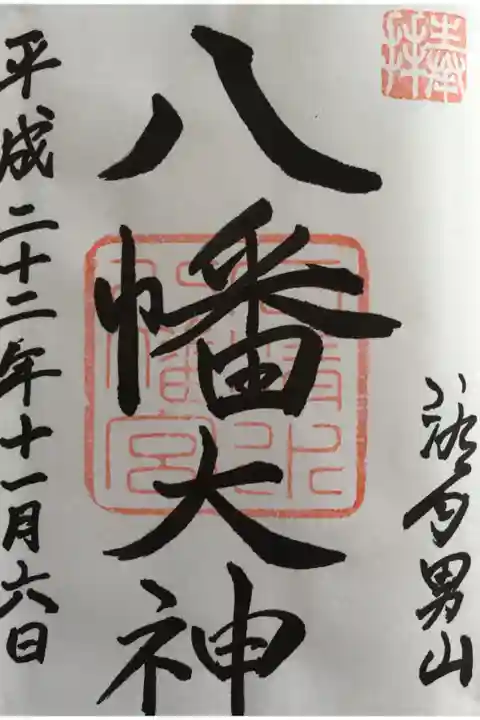 奉拝
洛南男山
八幡大神
石清水
八幡宮
平成二十二年十一月六日